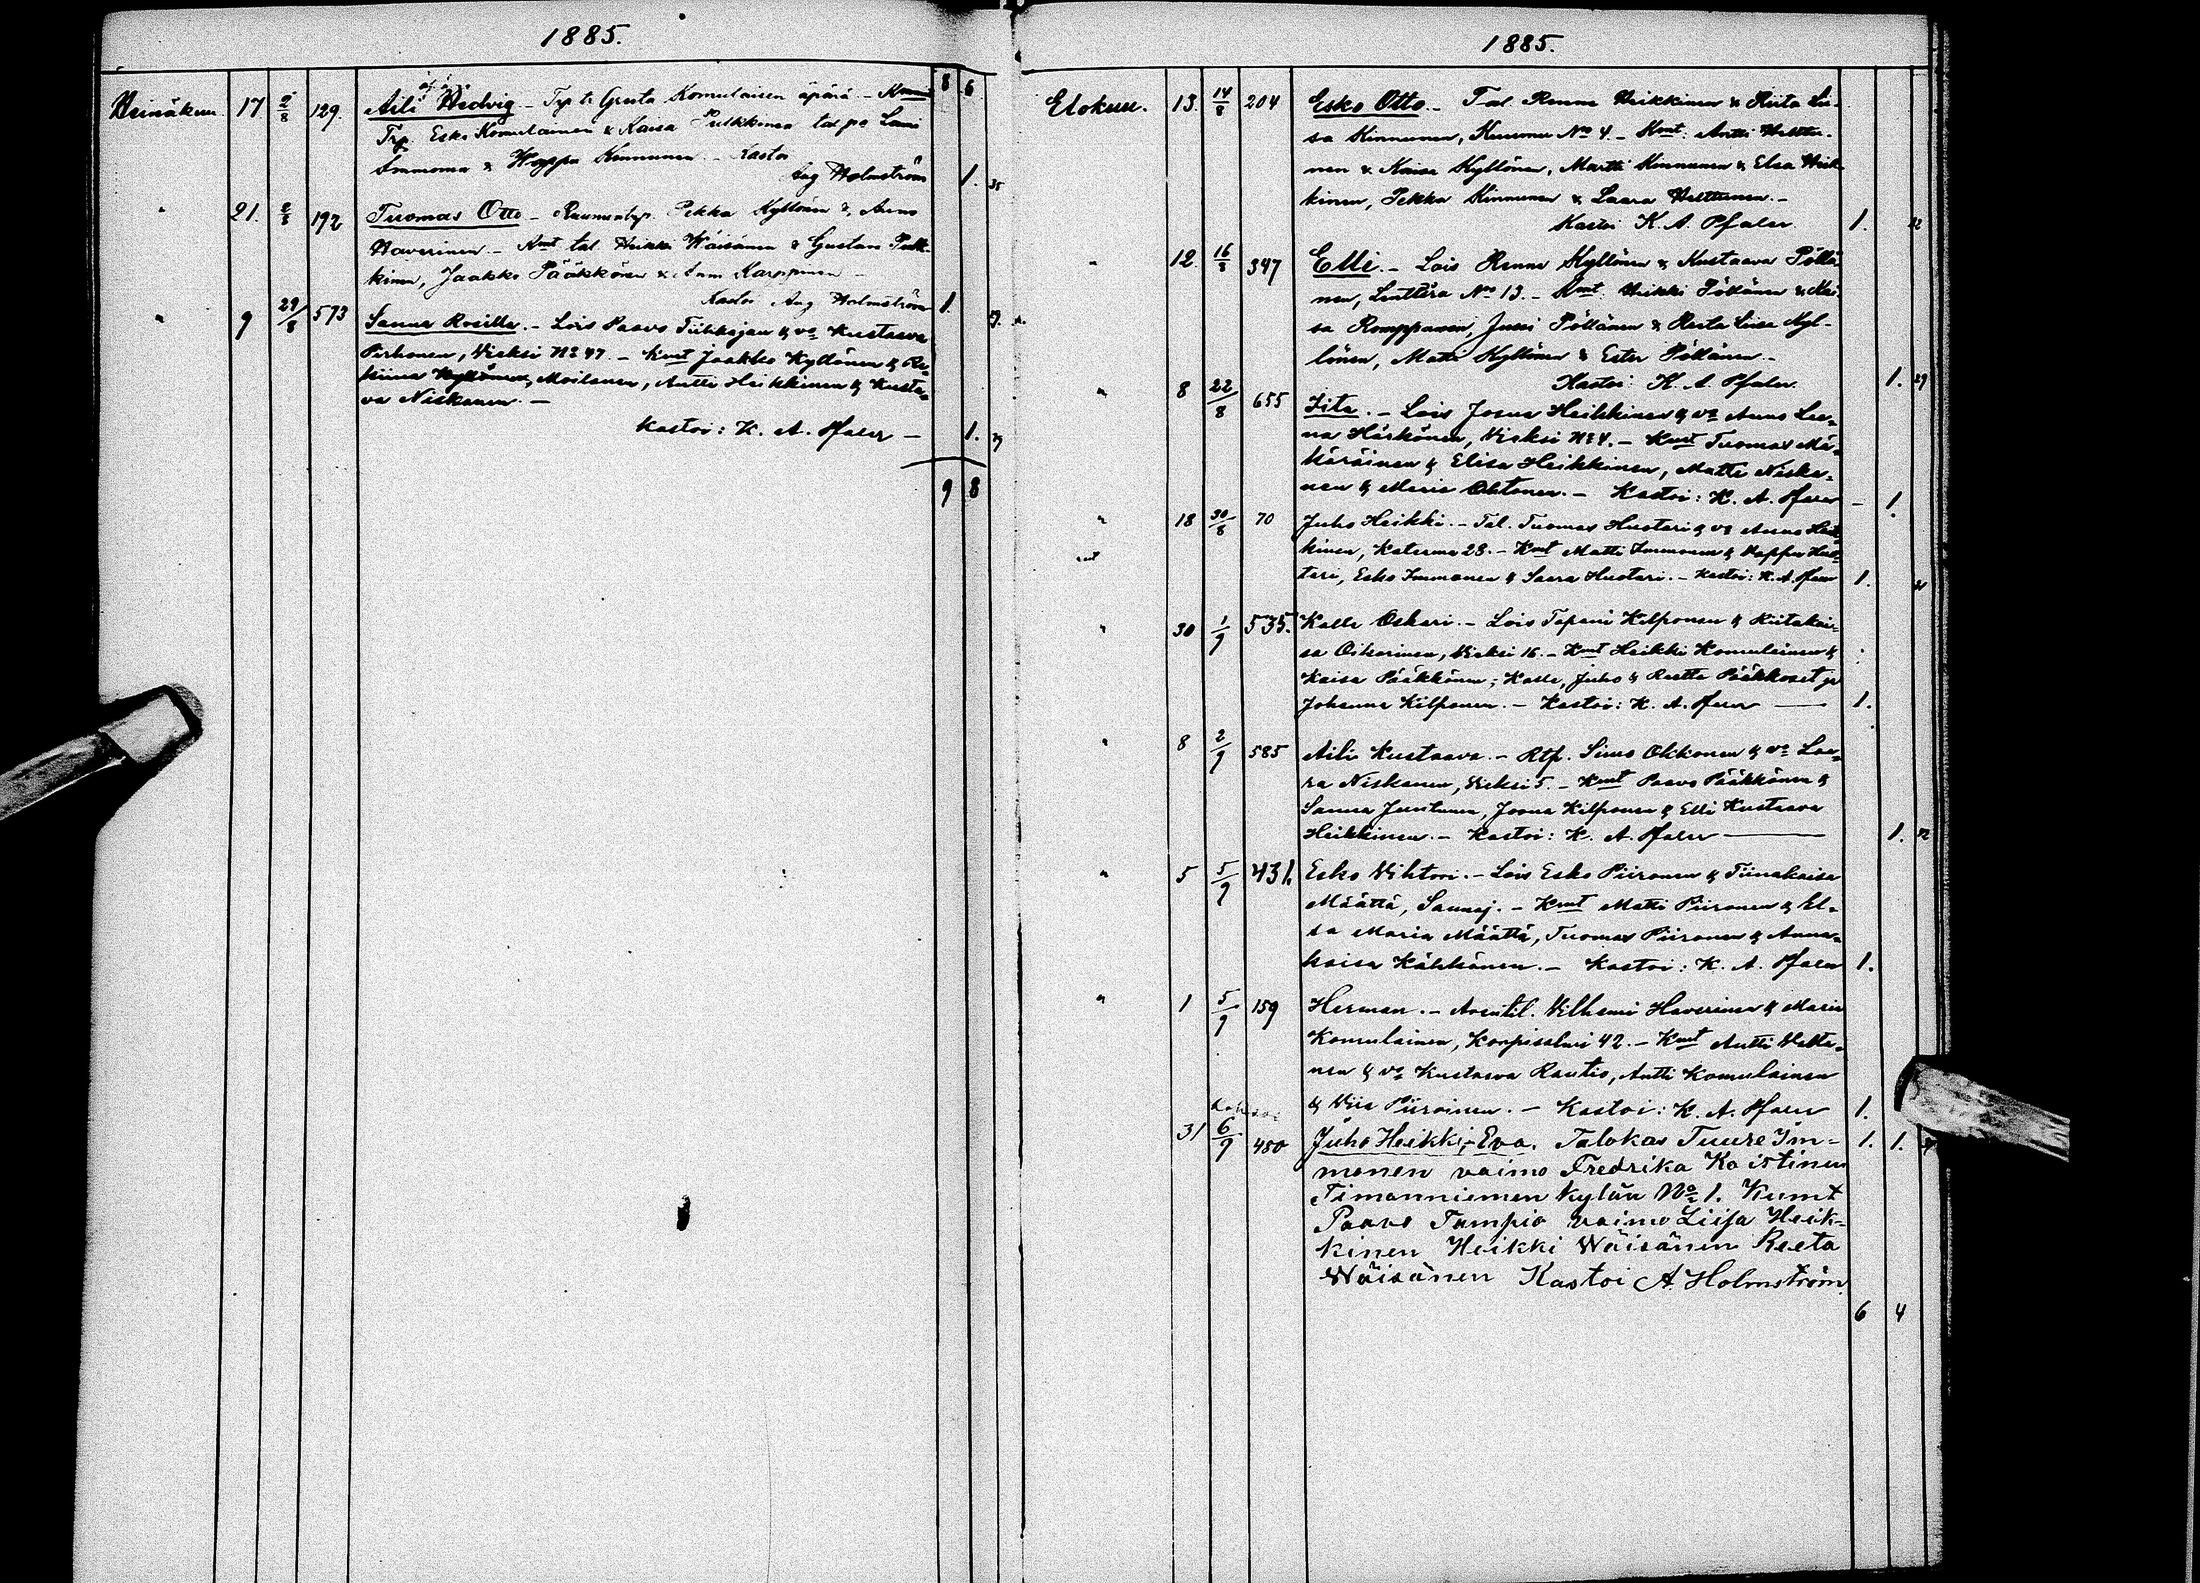 1885.
8 6
Heinäkuu. 17 2/8 129. Aili Hedvig - Typ. tr Greeta Komulaisen äpärä. - Kummit
Trp. Esko Komulainen & Kaisa Pulkkinen tal. po Lauri
Immonen & Wappu Kinnunen - Kastoi
Aug Holmström 1. 35
" 21. 2/8 192 Tuomas Otto - Ruununtyp. Pekka Kyllönen & Anna
Haverinen - Kmt tal. Heikki Wäisänen & Gustava Pulk-
kinen, Jaakko Pääkkönen & Anna Karppinen -
Kastoi Aug Holmström 1.
" 9 29/8 573 Sanna Rosilla. - Lois Paavo Tiikkajan & vo Kustaava
Pirhonen, Vieksi No 47. - Kmt Jaakko Kyllönen & Re-
kiina Kyllönen, Moilanen, Antti Heikkinen & Kusta-
va Niskanen. -
Kastoi: K. A. Pfaler - 1. 29
9 8
1885.
Elokuu. 13. 14/8 204 Esko Otto. - Tal. Renne Heikkinen & Riita Lii-
sa Kinnunen, Kuumu No 4. - Kmt. Antti Heltu-
nen & Kaisa Kyllönen, Martti Kinnunen & Elsa Heik-
kinen, Pekka Kinnunen & Laara Helttunen. -
Kastoi K. A. Pfaler. 1. 22
" 12 16/8 347 Elli. - Lois Renne Kyllönen & Kustaava Pöllä-
nen, Lenttira No 13. - Kmt. Heikki Pöllänen & Kai-
sa Romppanen, Jussi Pöllänen & Reeta Liisa Kyl-
lönen, Matti Kyllönen & Ester Pöllänen. -
Kastoi: K. A. Pfaler. 1. 29
" 8 22/8 655 Iita. - Lois Joona Heikkinen & vo Anna Lee-
na Härkönen, Vieksi No 4. - Kmt Tuomas Mä-
käräinen & Elisa Heikkinen, Matti Niska-
nen & Maria Ohtonen. - Kastoi: K. A. Pfaler - 1.
" 18 30/8 70 Juho Heikki. - Tal. Tuomas Huotari & vo Anna Heik-
kinen, Katerma 28. - Kmt Matti Immonen & Wappu Huo-
tari, Esko Immonen & Saara Huotari. - Kastoi: K. A. Pfaler 1.
" 30 1/9 535. Kalle Oskari. - Lois Tapani Kilponen & Riitakai-
sa Oikarinen, Vieksi 16. - Kmt Heikki Komulainen &
Kaisa Pääkkönen; Kalle, Juho & Reetta Pääkköset ja
Johanna Kilponen. - Kastoi: K. A. Pfaler - 1.
" 8 2/9 585 Aili Kustaava. - Rtp. Simo Okkonen & vo Laa-
ra Niskanen, Vieksi 5. - Kmt Paavo Pääkkönen &
Sanna Juntunen, Joona Kilponen & Elli Kustaava
Heikkinen. - Kastoi: K. A. Pfaler - 1.
" 5 5/9 431. Esko Vihtori. - Lois Esko Piironen & Tiinakaisa
Määttä, Saunaj. - Kmt Matti Piironen & El-
sa Maria Määttä, Tuomas Piironen & Anna-
kaisa Kähkönen. - Kastoi: K. A. Pfaler 1.
" 1 5/9 159 Herman. - Arentil. Vilhemi Haverinen & Maria
Komulainen, Korpisalmi 42. - Kmt Antti Halta-
nen & vo Kustaava Rautio, Antti Komulainen
& Viia Piirainen. - Kastoi: K. A. Pfaler 1.
31 6/9 480 Juho Heikki, Eva. Talokas Tuure Im- 1. 1.
monen vaimo Fredrika Koistinen
Timonniemen kylän No 1. Kumt
Paavo Tampio vaimo Liisa Heik-
kinen Heikki Wäisänen Reeta
Wäisänen Kastoi A. Holmström.
6 4